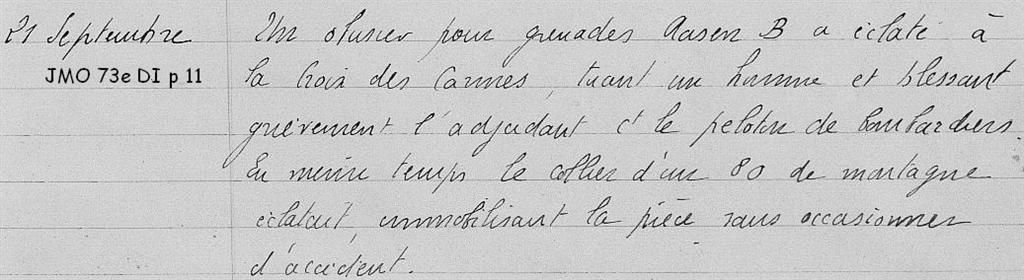 21 Septembre
JMO 73e DI p 11
Un obusier pour grenades Aasen B a éclaté à
la Croix des Carmes, tuant un homme et blessant
grièvement l'adjudant ct le peloton de bombardiers.
En même temps le collier d'un 80 de montagne
éclatait, immobilisant la pièce sans occasionner
d'accident.